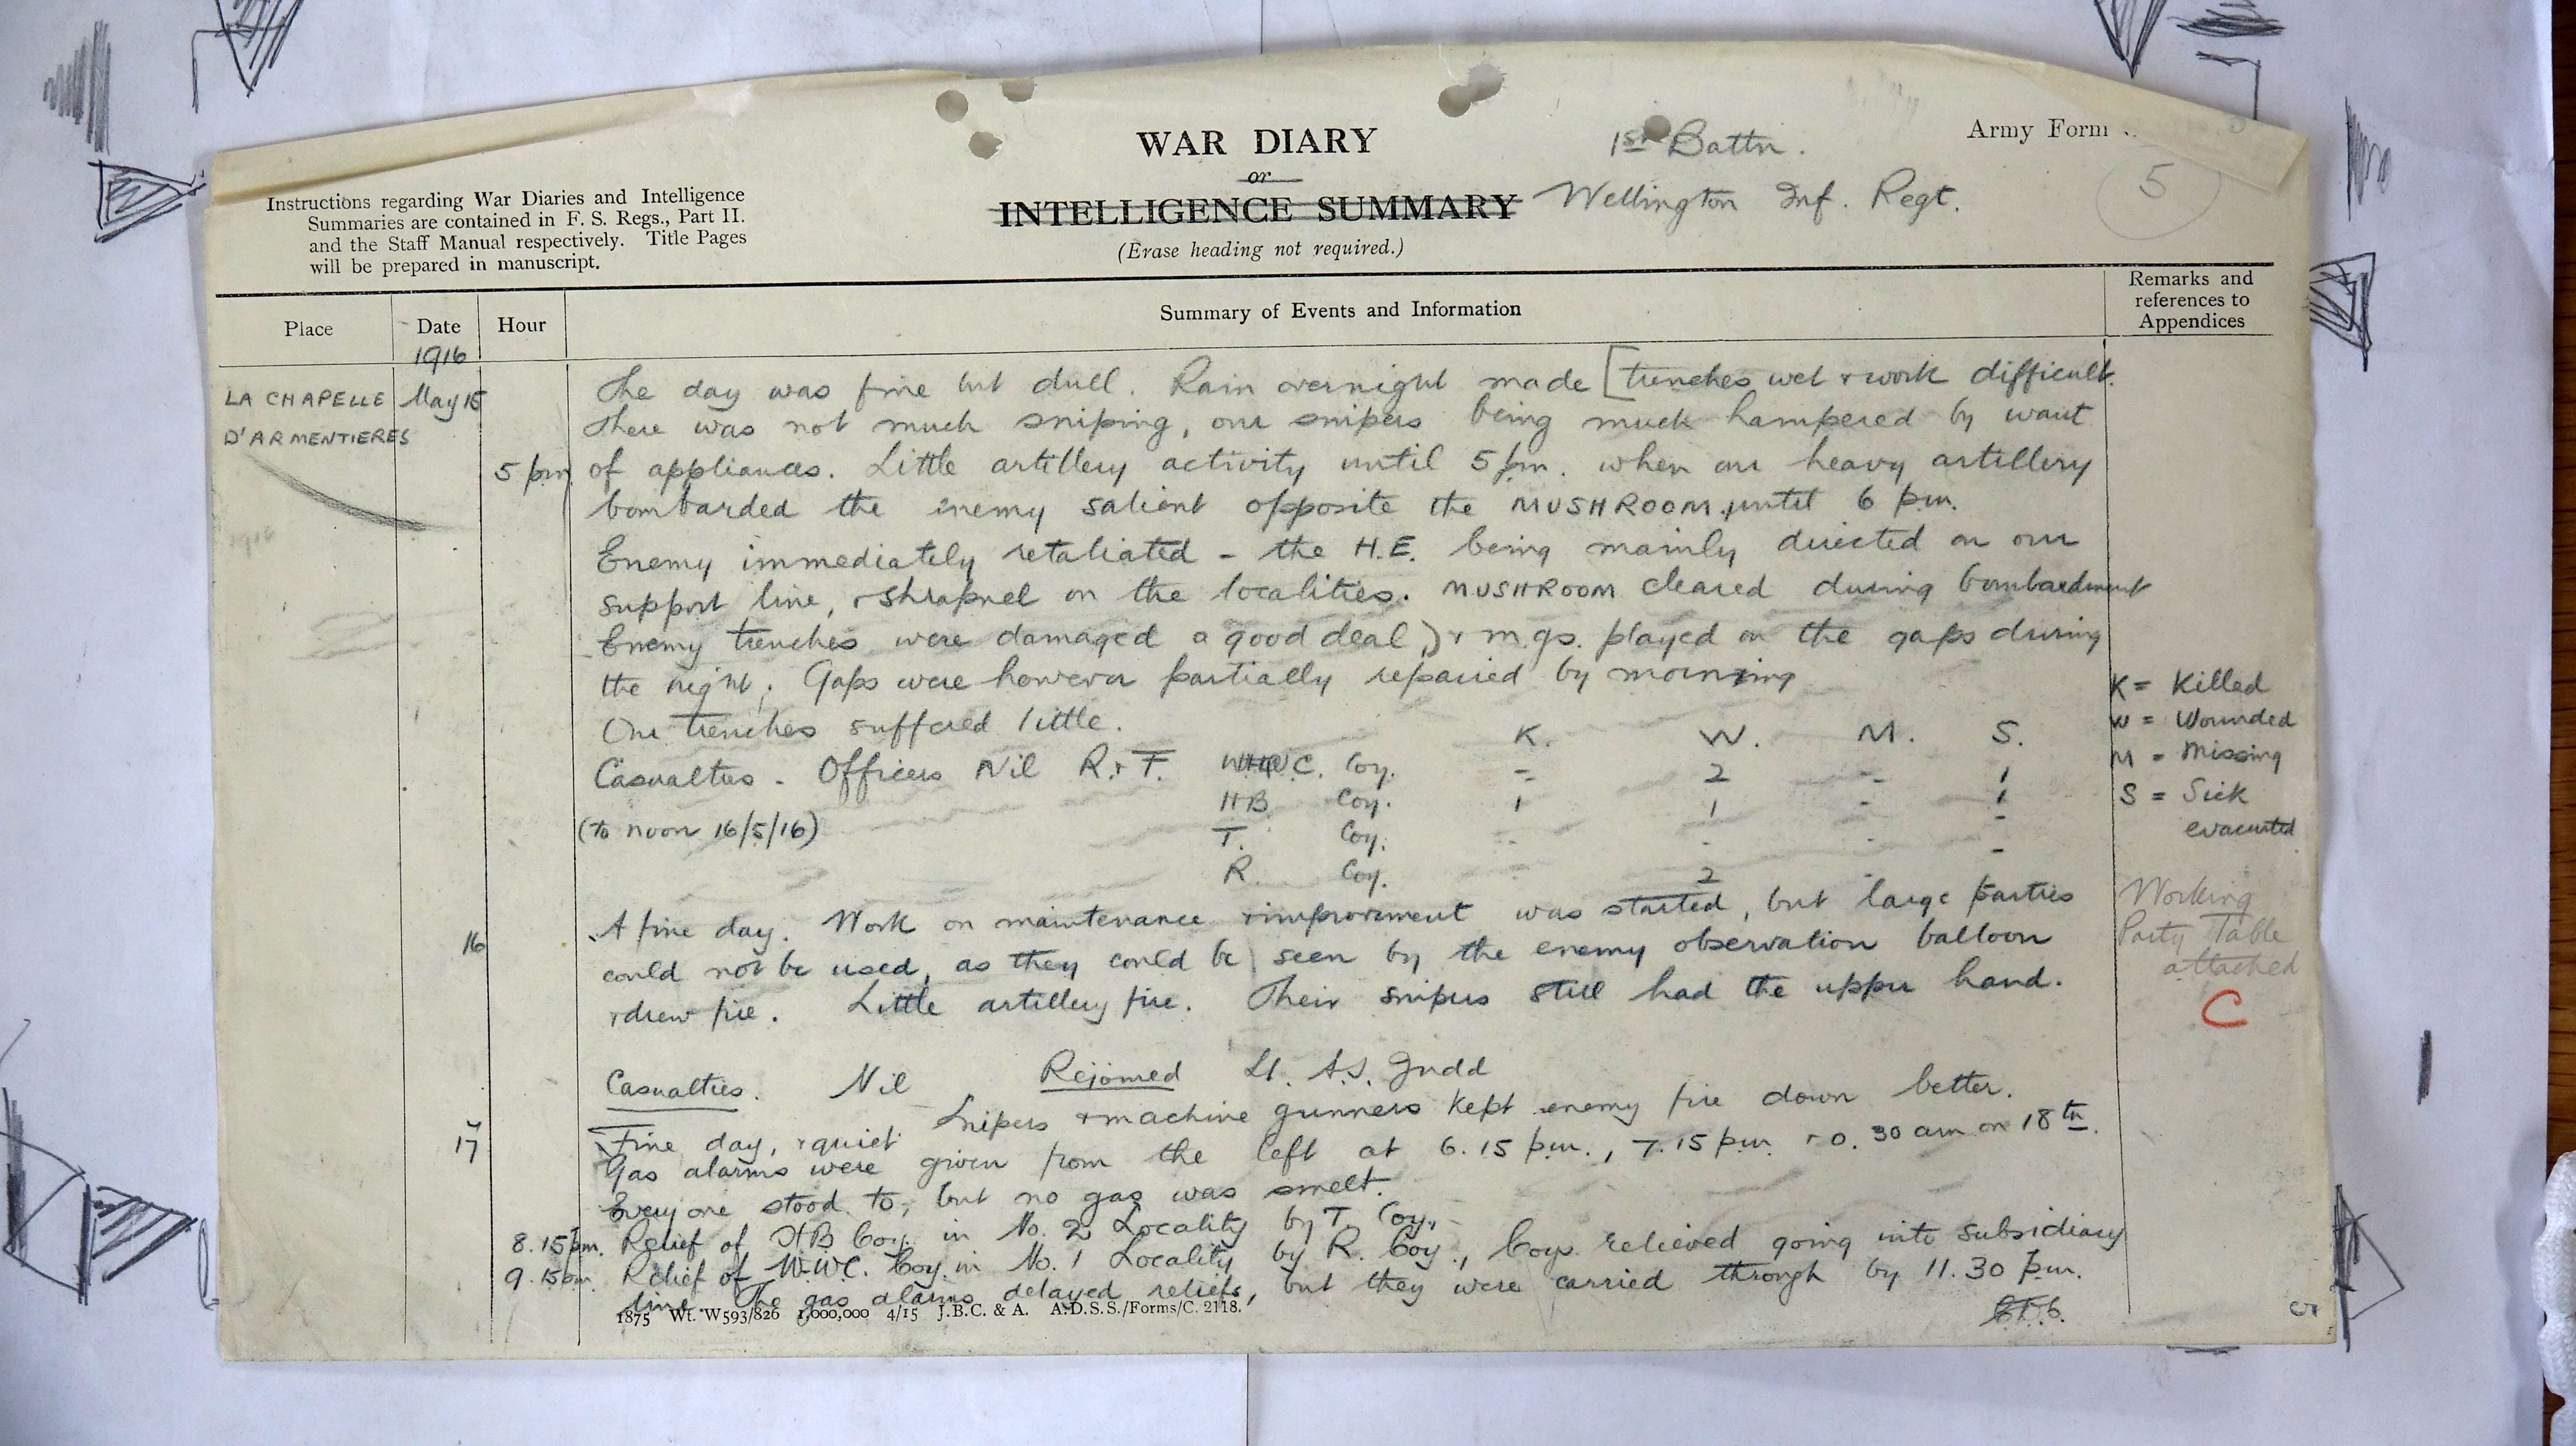 WAR DIARY
or
INTELLIGENCE SUMMARY
(Erase heading not required.)
1st Battn.
Wellington Inf. Regt.
Army Form
5
Instructions regarding War Diaries and Intelligence
Summaries are contained in F. S. Regs., Part II.
and the Staff Manual respectively. Title Pages
will be prepared in manuscript.
Place Date Hour Summary of Events and Information Remarks and references to Appendices
1916
LA CHAPELLE May 15 The day was fine but dull. Rain overnight made [trenches wet & work difficult.
D'ARMENTIERES There was not much sniping, our snipers being much hampered by want
5 pm of appliances. Little artillery activity until 5 pm. when our heavy artillery
bombarded the enemy salient opposite the MUSHROOM until 6 p.m.
Enemy immediately retaliated - the H.E. being mainly directed on our
support line, & shrapnel on the localities. MUSHROOM cleared during bombardment
Enemy trenches were damaged a good deal,) & m.gs. played on the gaps during
the night. Gaps were however partially repaired by morning
Our trenches suffered little. K. W. M. S.
Casualties - Officers Nil R. & F. W.W.C. Coy. - 2 - 1
HB Coy. 1 1 - 1
(to noon 16/5/16) T. Coy. - - - -
R. Coy. - 2 - -
K = Killed
W = Wounded
M = Missing
S = Sick
evacuated
16 A fine day. Work on maintenance & improvement was started, but large parties
could not be used, as they could be seen by the enemy observation balloon
& drew fire. Little artillery fire. Their snipers still had the upper hand.
Working
Party Table
attached
C
Casualties. Nil Rejoined Lt. A.S. Judd
17 Fine day, & quiet. Snipers & machine gunners kept enemy fire down better.
Gas alarms were given from the left at 6.15 p.m., 7.15 p.m. & 0.30 am on 18th.
Everyone stood to, but no gas was smelt.
8.15 pm. Relief of HB Coy. in No. 2 Locality by T. Coy.
9.15 pm. Relief of W.W.C. Coy. in No. 1 Locality by R. Coy., Coys relieved going into subsidiary
line. The gas alarms delayed reliefs, but they were carried through by 11.30 p.m.
1875 Wt. W593/826 1,000,000 4/15 J.B.C. & A. A.D.S.S./Forms/C. 2118.